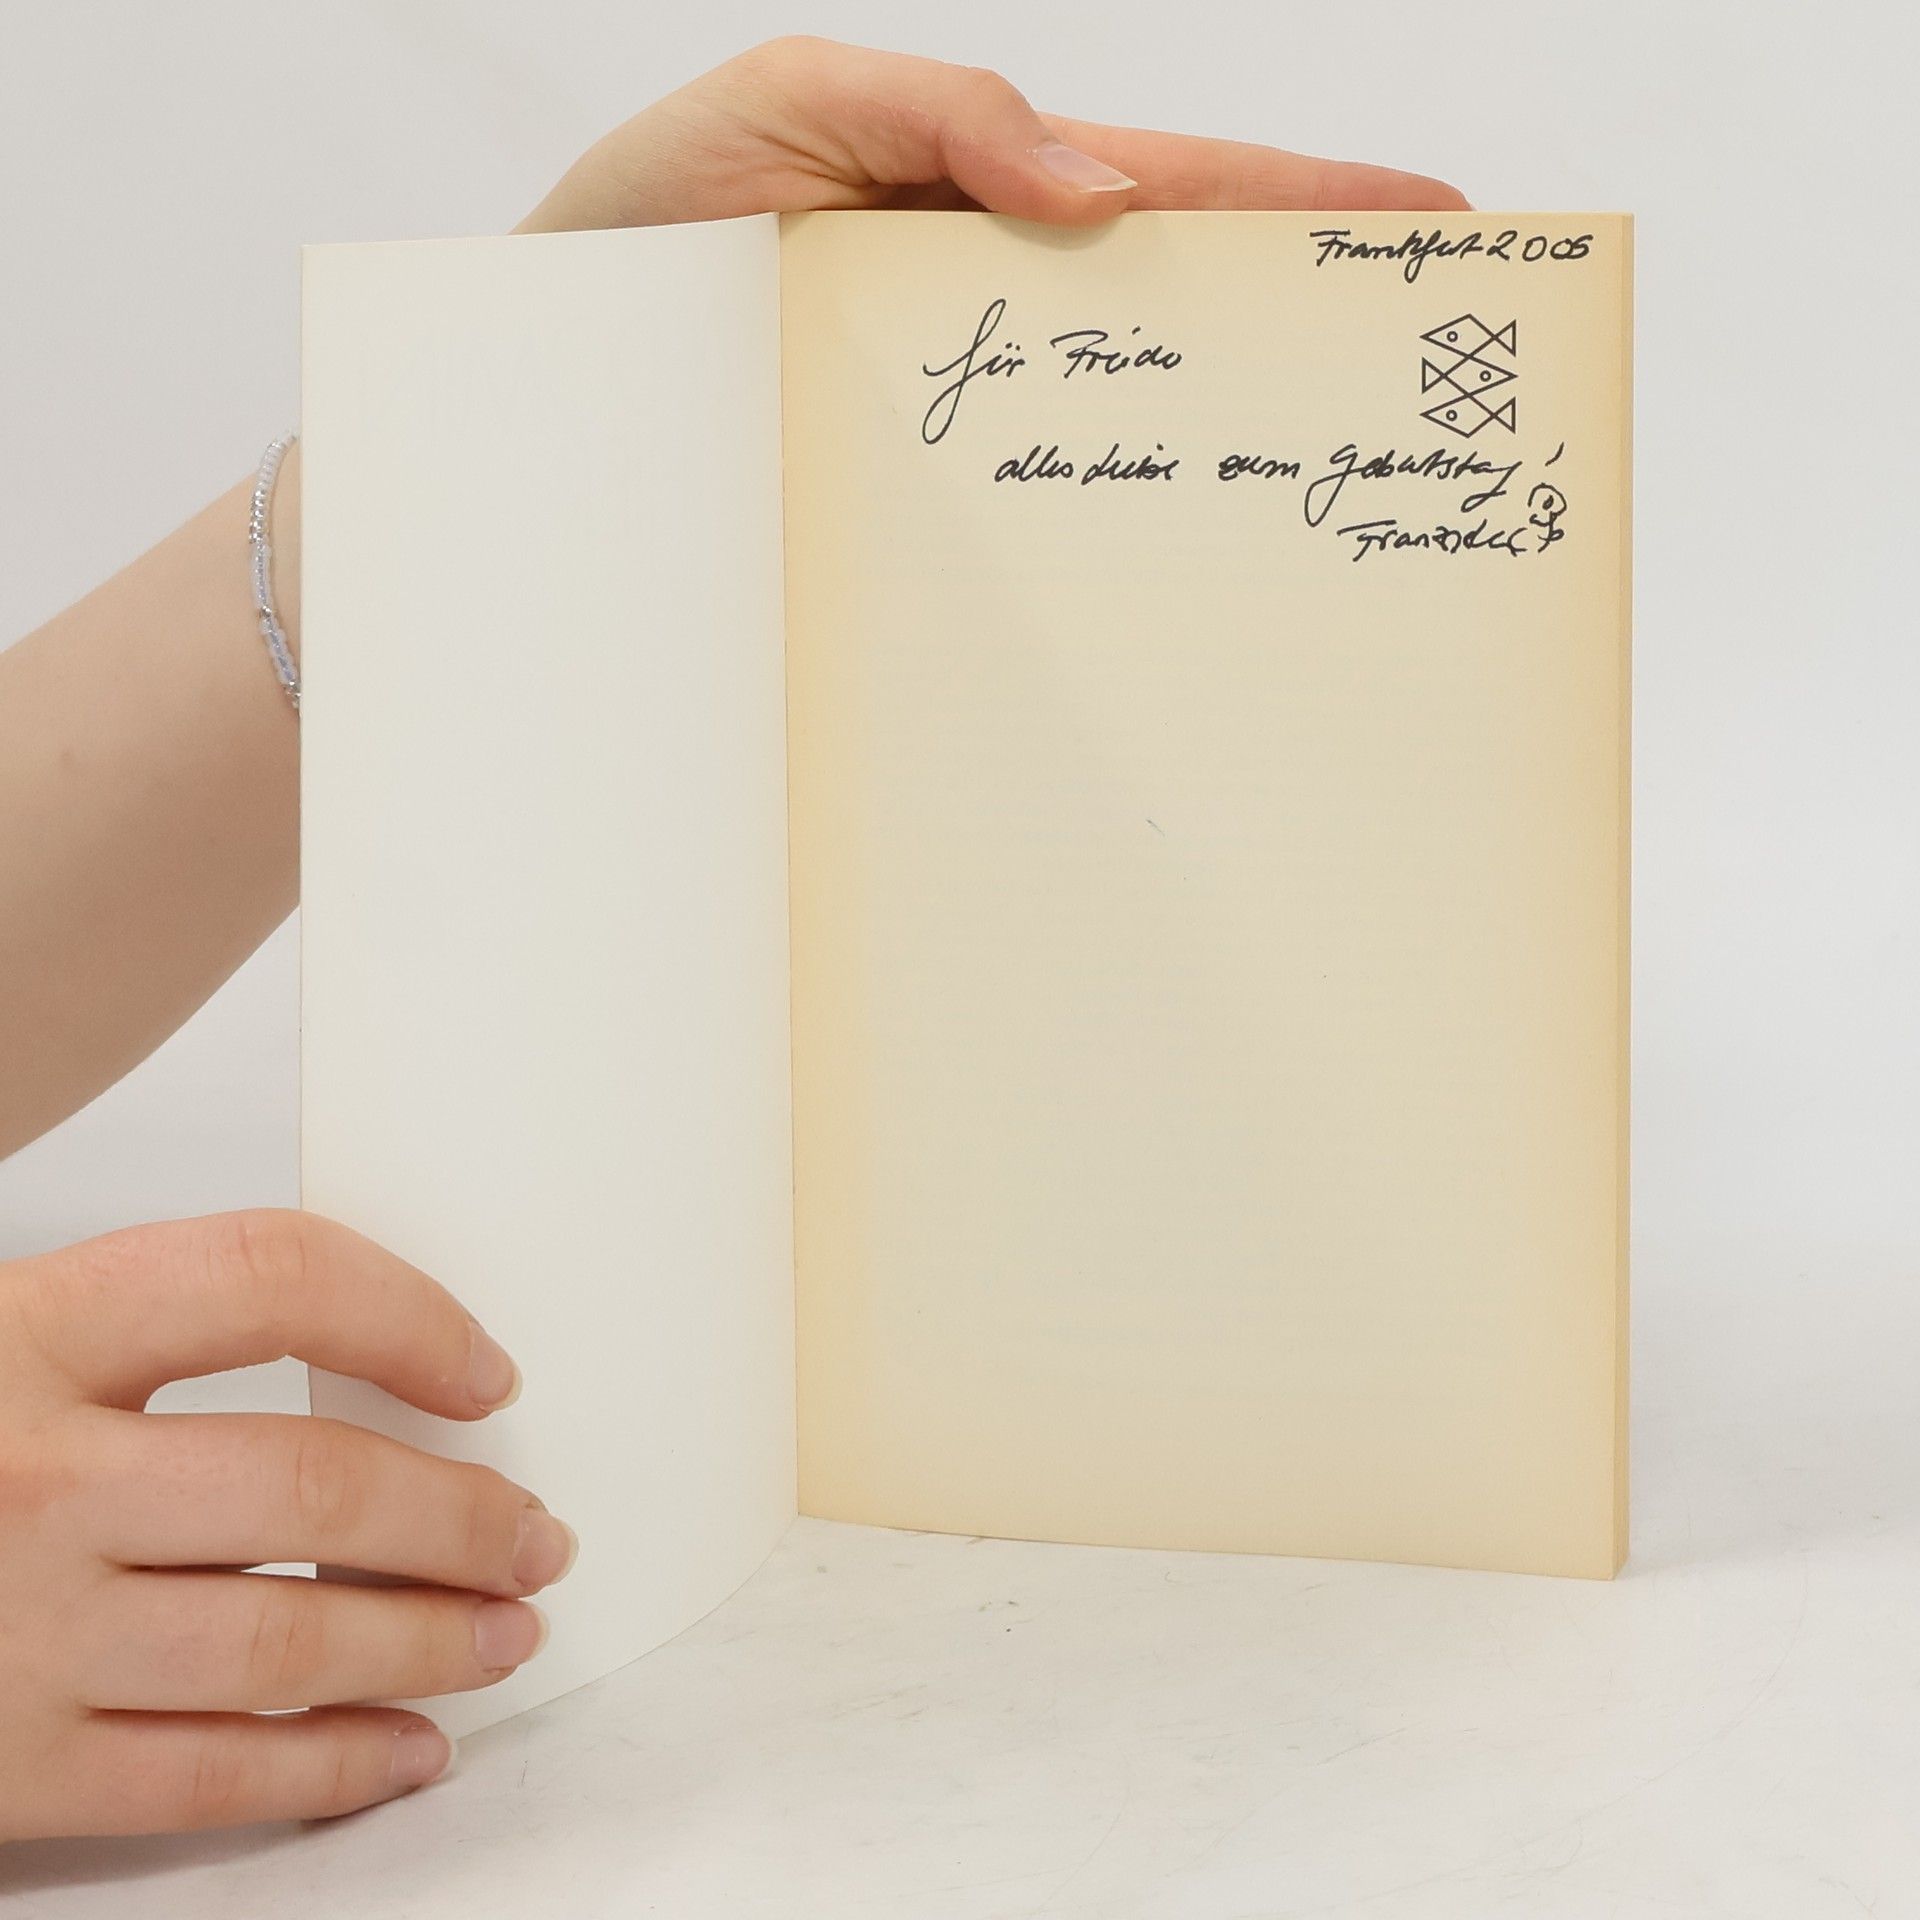 Frankfurt 2005
für Frido
alles Liebe zum Geburtstag!
Franziska